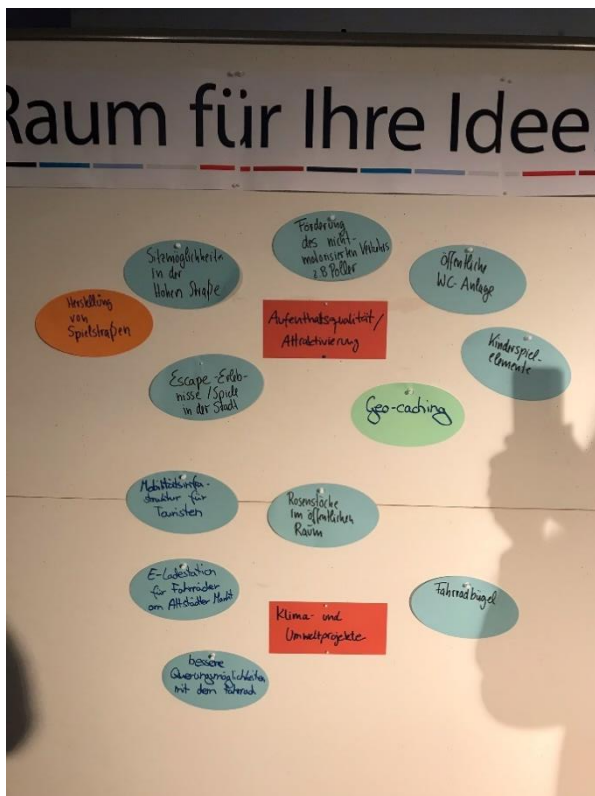 Raum für Ihre Idee
Sitzmöglichkeiten
in der
Hohen Straße
Förderung
des nicht-
motorisierten Verkehrs
z.B Poller
öffentliche
WC-Anlage
Herstellung
von
Spielstraßen
Aufenthaltsqualität/
Attraktivierung
Kinderspiel-
elemente
Escape-Erleb-
nisse/Spiele
in der Stadt
Geo-caching
Mobilitätsinfra-
struktur für
Touristen
Rosenstöcke
im öffentlichen
Raum
E-Ladestation
für Fahrräder
am Altstädter Markt
Klima- und
Umweltprojekte
Fahrradbügel
bessere
Querungsmöglichkeiten
mit dem Fahrrad